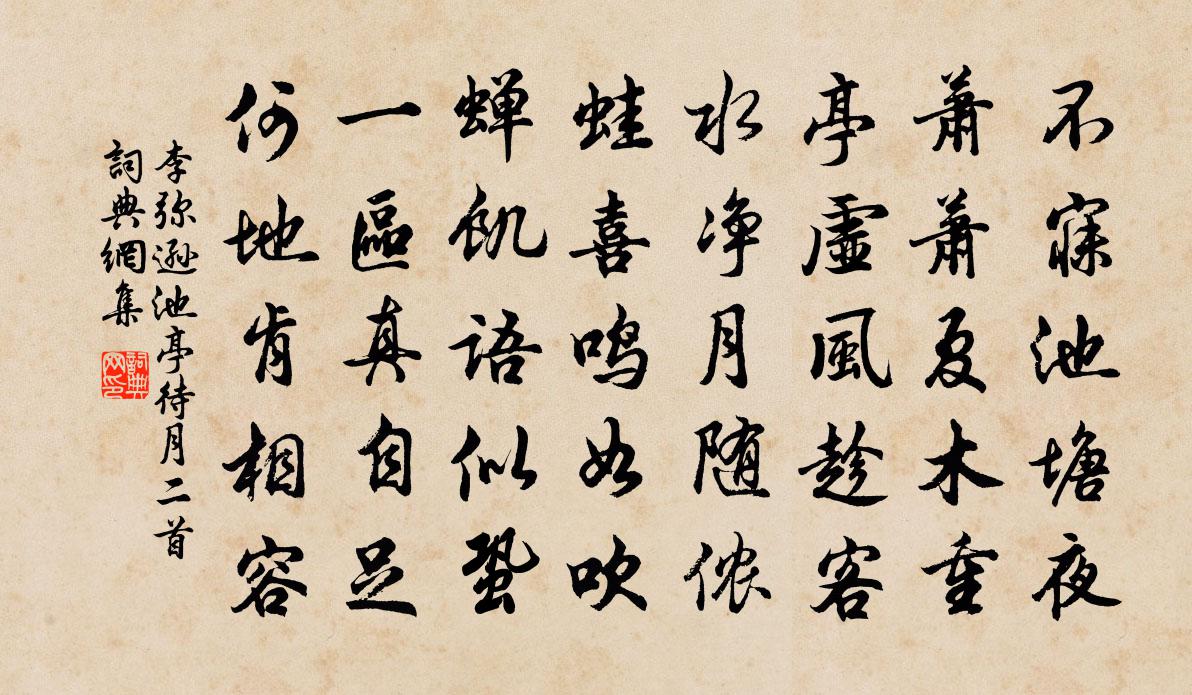 不寐池塘夜
蕭蕭夏木重
亭虛風趁客
水净月随侬
蛙喜鸣如吹
蝉飢語似蛩
一區真自足
何地肯相容
李弥遜池亭待月二首
詞典網集
詞典网印